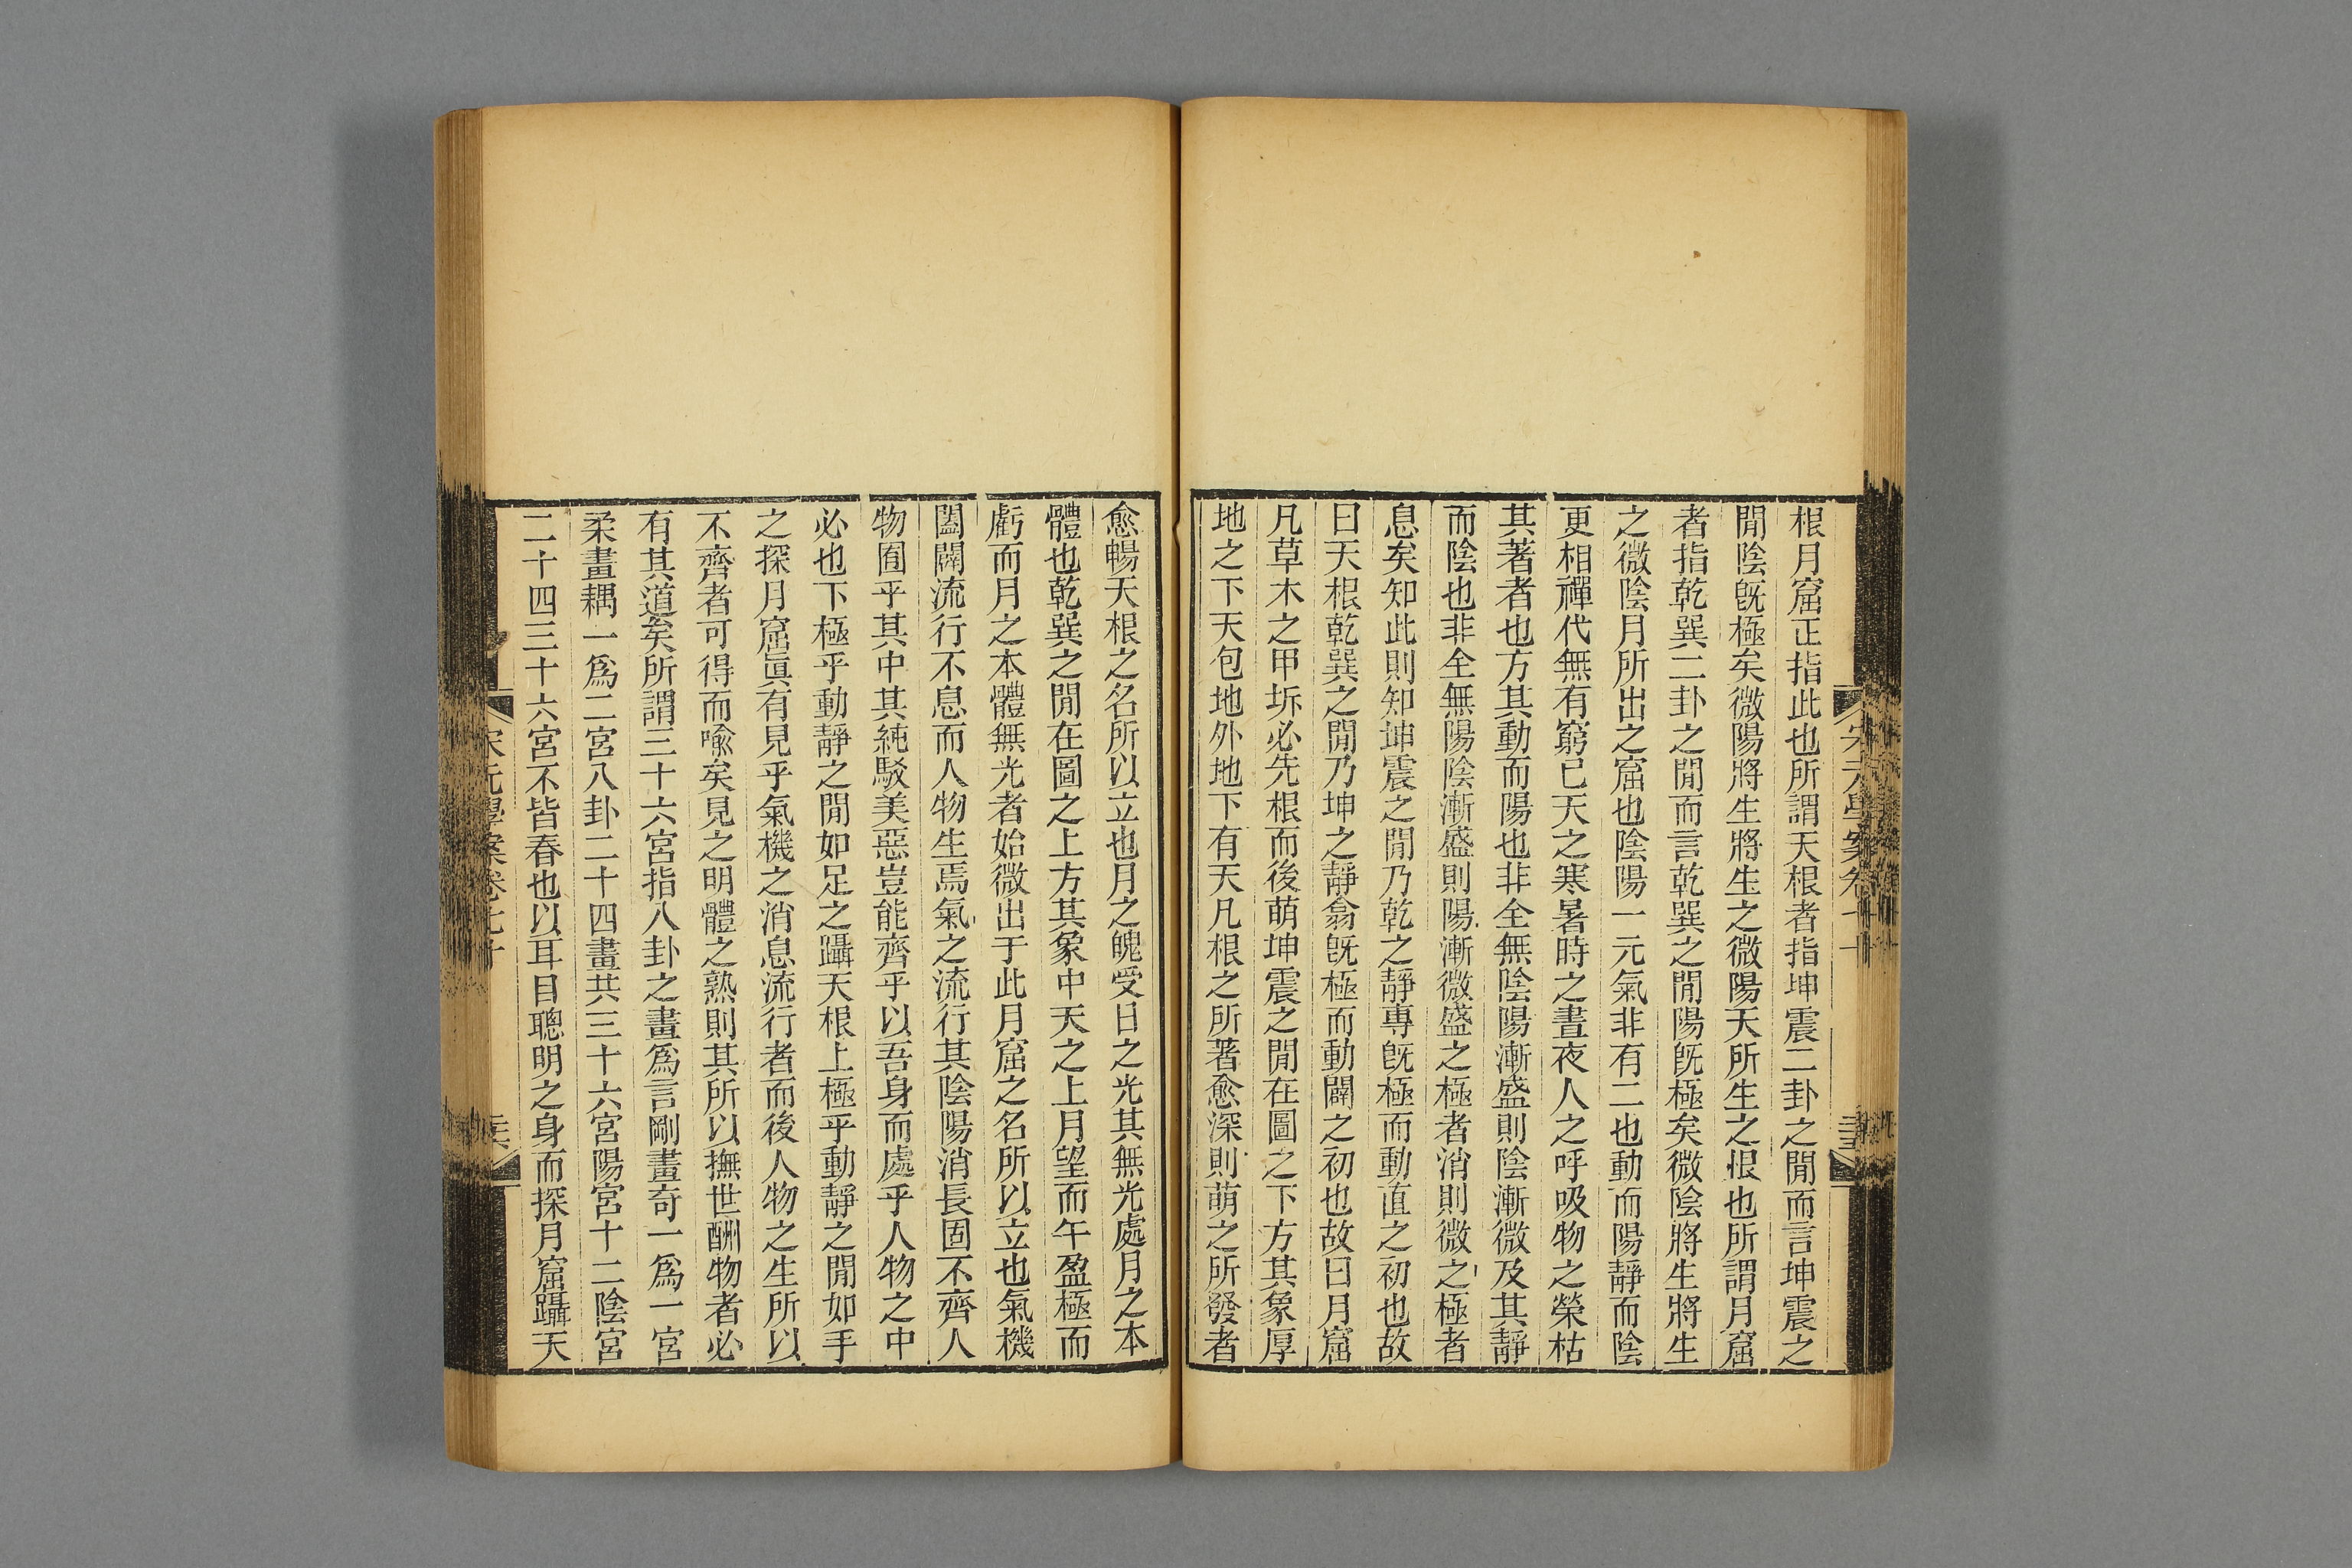 根月窟正指此也所謂天根者指坤震二卦之閒而言坤震之
閒陰旣極矣微陽將生將生之微陽天所生之根也所謂月窟
者指乾巽二卦之閒而言乾巽之閒陽旣極矣微陰將生將生
之微陰月所出之窟也陰陽一元氣非有二也動而陽靜而陰
更相禪代無有窮已天之寒暑時之晝夜人之呼吸物之榮枯
其著者也方其動而陽也非全無陰陽漸盛則陰漸微及其靜
而陰也非全無陽陰漸盛則陽漸微盛之極者消則微之極者
息矣知此則知坤震之閒乃乾之靜專旣極而動直之初也故
曰天根乾巽之閒乃坤之靜翕旣極而動闢之初也故曰月窟
凡草木之甲坼必先根而後萌坤震之閒在圖之下方其象厚
地之下天包地外地下有天凡根之所著愈深則萌之所發者
愈暢天根之名所以立也月之魄受日之光其無光處月之本
體也乾巽之閒在圖之上方其象中天之上月望而午盈極而
虧而月之本體無光者始微出于此月窟之名所以立也氣機
闔闢流行不息而人物生焉氣之流行其陰陽消長固不齊人
物囿乎其中其純駁美惡豈能齊乎以吾身而處乎人物之中
必也下極乎動靜之閒如足之躡天根上極乎動靜之閒如手
之探月窟眞有見乎氣機之消息流行者而後人物之生所以
不齊者可得而喩矣見之明體之熟則其所以撫世酬物者必
有其道矣所謂三十六宮指八卦之畫爲言剛畫奇一爲一宮
柔畫耦一爲二宮八卦二十四畫共三十六宮陽宮十二陰宮
二十四三十六宮不皆春也以耳目聰明之身而探月窟躡天
宋元學案卷七十